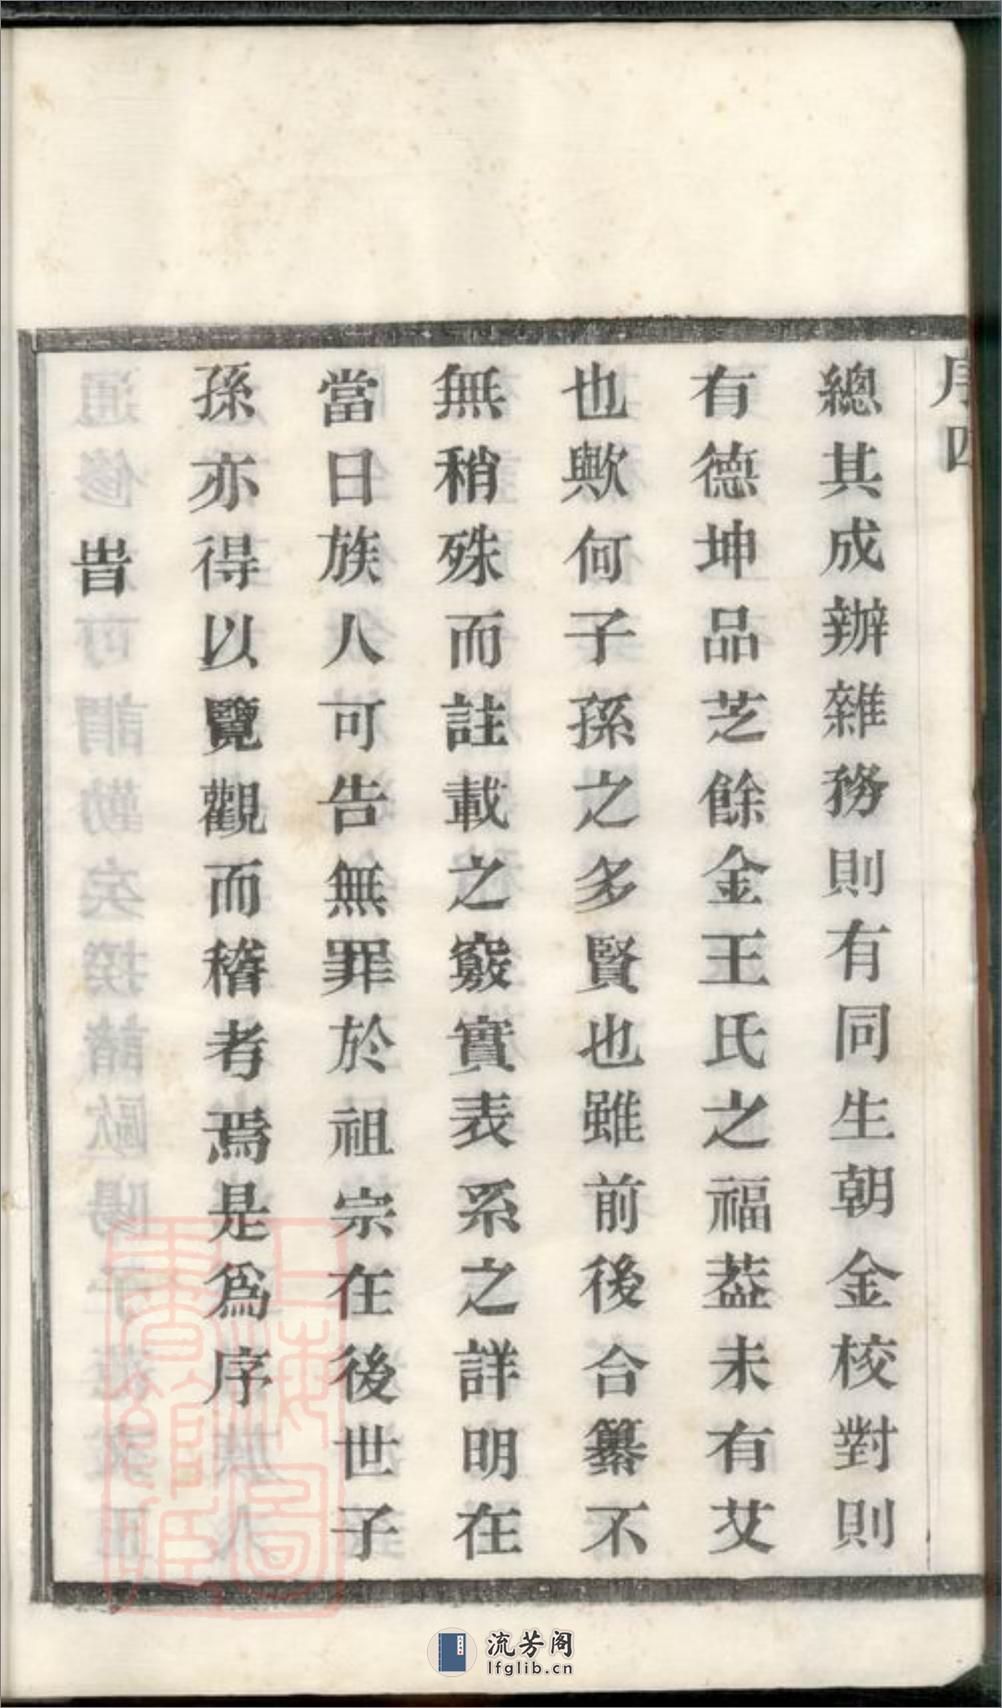 序四
總其成辦雜務則有同生朝金校對則
有德坤品芝餘金王氏之福葢未有艾
也歟何子孫之多賢也雖前後合纂不
無稍殊而註載之竅實表系之詳明在
當日族人可告無罪於祖宗在後世子
孫亦得以覽觀而稽考焉是爲序
旹
上海圖書館藏
流芳阁
lfglib.cn